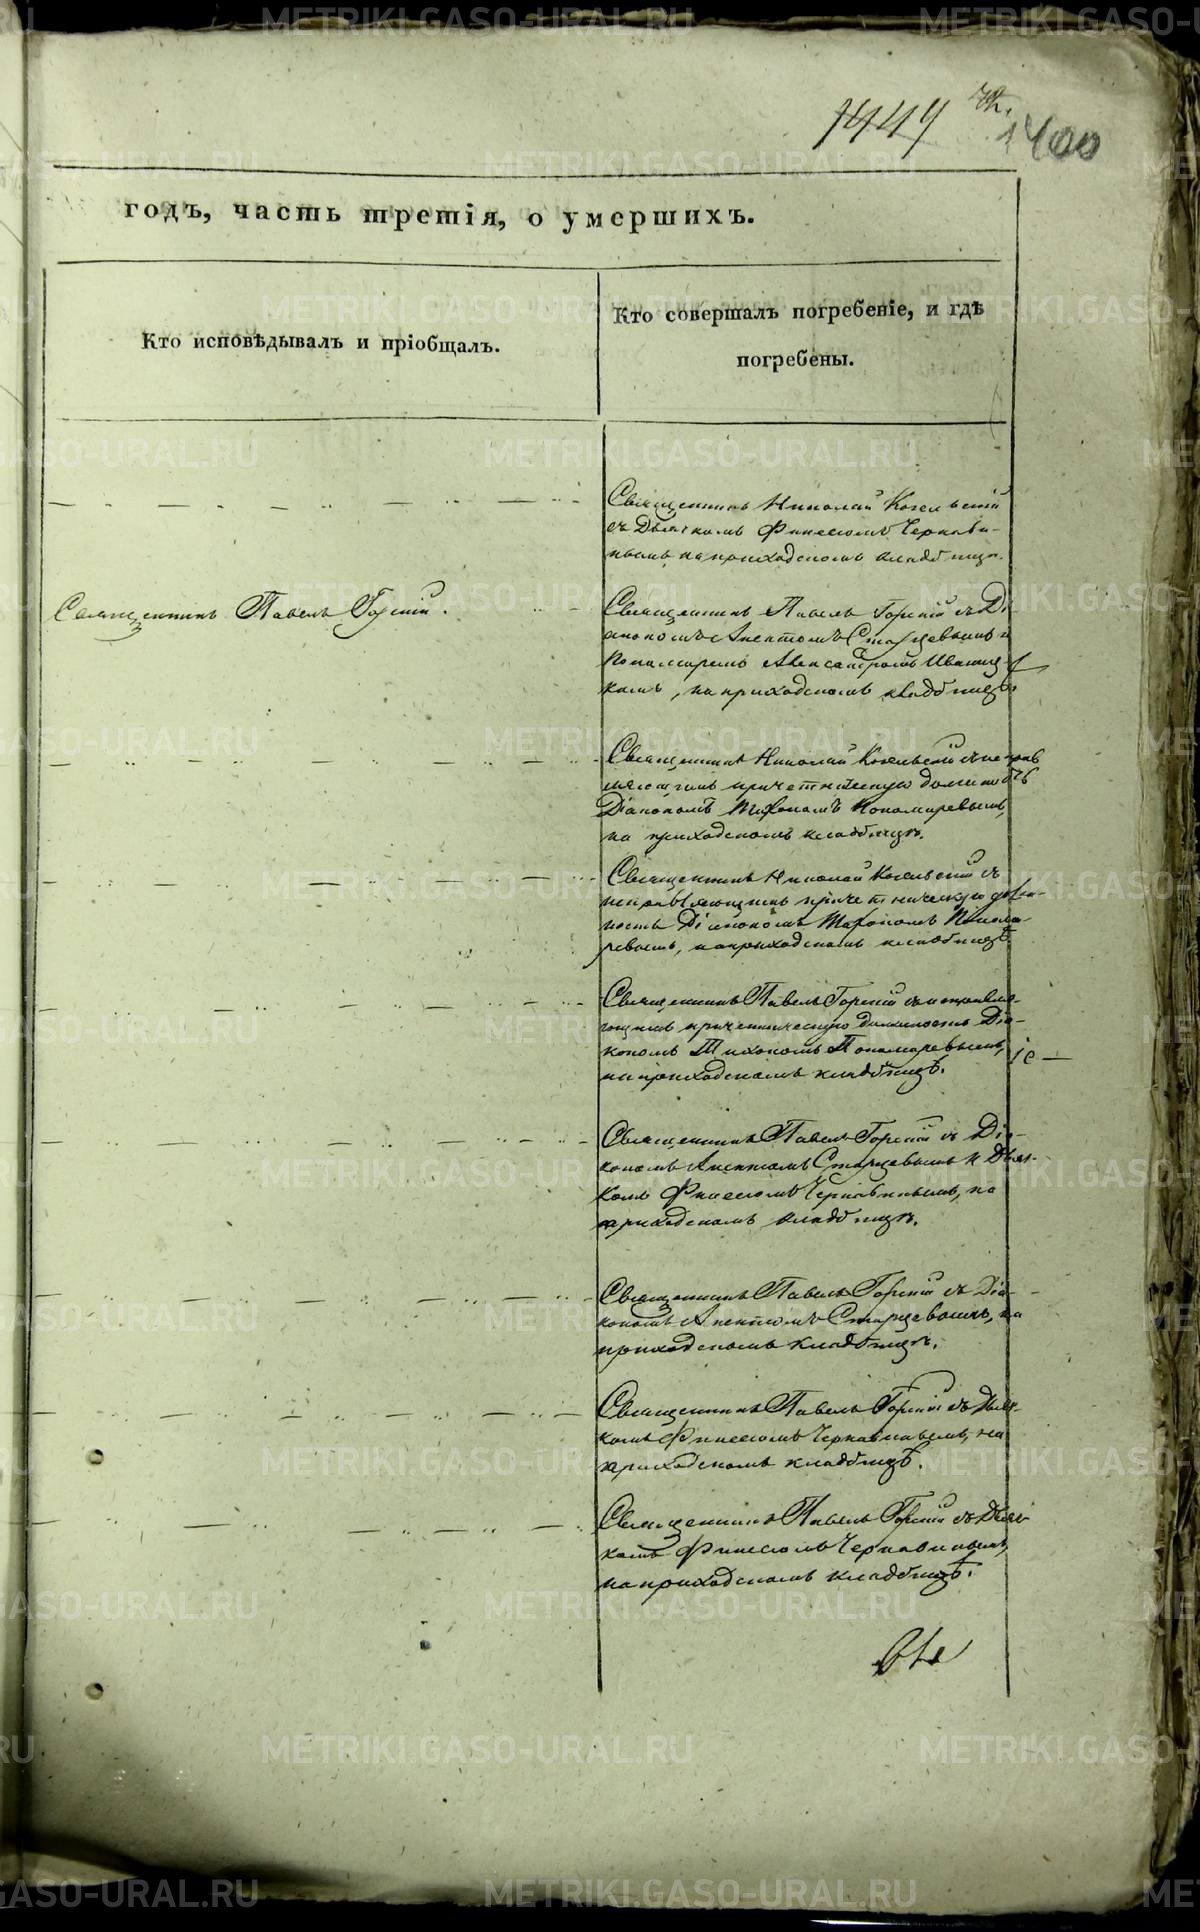 1447
1400
годъ, часть третія, о умершихъ.
Кто исповѣдывалъ и пріобщалъ.
Кто совершалъ погребеніе, и гдѣ
погребены.
Священникъ Николай Косельскій
съ Дьячкомъ Финеесомъ Чернави-
нымъ на приходскомъ кладбищѣ.
Священникъ Павелъ Горскій.
Священникъ Павелъ Горскій съ Ді
акономъ Старцевымъ и
Пономаремъ Александромъ Иваниц-
кимъ, на приходскомъ кладбищѣ.
Священникъ Николай Косельскій съ исправ
ляющимъ причетническую должность
Діакономъ Тихономъ Пономаревымъ,
на приходскомъ кладбищѣ.
Священникъ Николай Косельскій съ
исправляющимъ причетническую долж-
ность Діакономъ Тихономъ Понома-
ревымъ, на приходскомъ кладбищѣ.
Священникъ Павелъ Горскій съ исправля-
ющимъ причетническую должность Діа-
кономъ Тихономъ Пономаревымъ,
на приходскомъ кладбищѣ.
Священникъ Павелъ Горскій съ Діа-
кономъ Старцевымъ и Дьяч-
комъ Финеесомъ Чернавинымъ, на
приходскомъ кладбищѣ.
Священникъ Павелъ Горскій съ Діа-
кономъ Старцевымъ, на
приходскомъ кладбищѣ.
Священникъ Павелъ Горскій съ Дьяч-
комъ Финеесомъ Чернавинымъ, на
приходскомъ кладбищѣ.
Священникъ Павелъ Горскій съ Дьяч-
комъ Финеесомъ Чернавинымъ,
на приходскомъ кладбищѣ.
METRIKI.GASO-URAL.RU